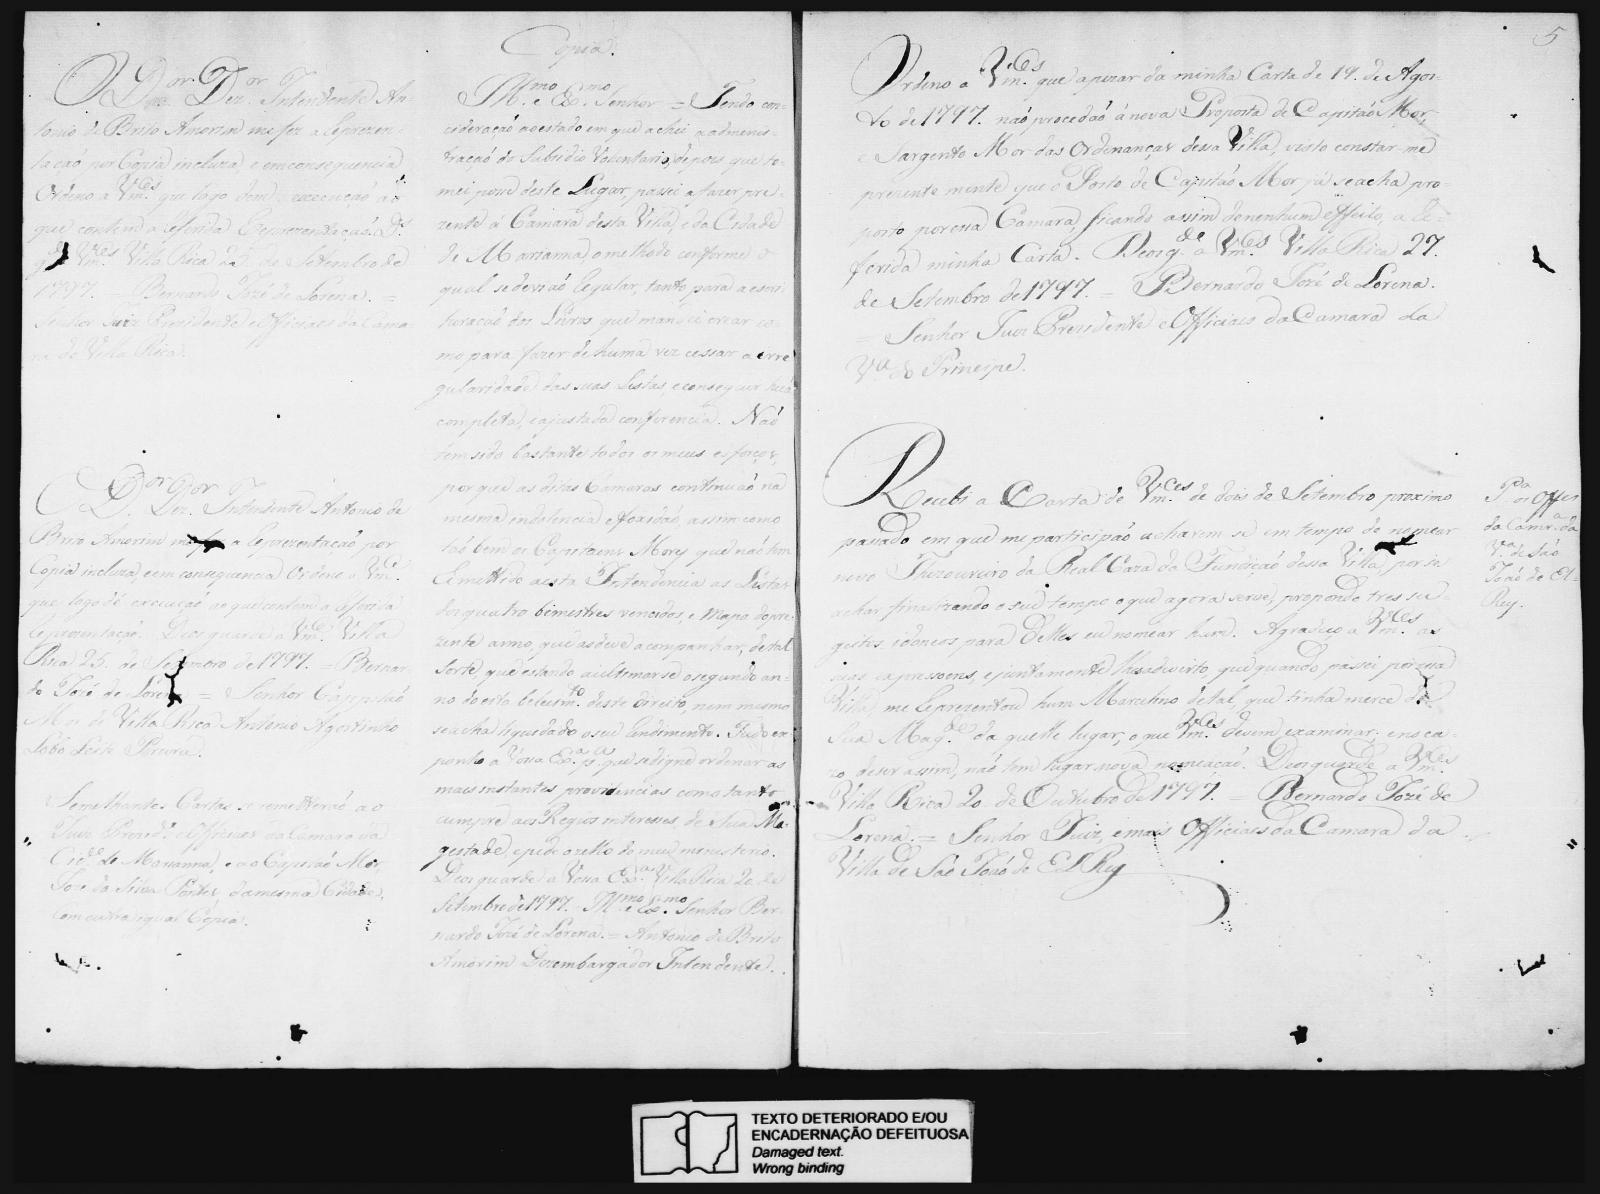 O D.or Dez.or Intendente An-
tonio de Brito Amorim me fez a Reprezen-
tação por Copia incluza, e em consequencia
Ordeno a Vm.ces que logo dem execução ao
que contem a referida Reprezentação. D.s
g.e a Vm.ces Villa Rica 25 de Setembro de
1797. = Bernardo Jozé de Lorena. =
Senhor Juiz Prezidente e Officiaes da Cama-
ra de Villa Rica.
O D.or Dez.or Intendente Antonio de
Brito Amorim me fez a Reprezentação por
Copia incluza, e em consequencia Ordeno a Vm.ce
que logo dê execução ao que contem a referida
Reprezentação. Deos guarde a Vm.ce Villa
Rica 25. de Setembro de 1797. = Bernar-
do Jozé de Lorena = Senhor Cappitão
Mor de Villa Rica Antonio Agostinho
Lobo Leite Pereira.
Semelhantes Cartas se remetterão ao
Juiz Prezid.e e Officiaes da Camara da
Cid.e de Marianna, e ao Capitão Mor,
Jozé da Silva Pontes, da mesma Cidade,
com outra igual Copia.
Copia.
Ill.mo e Ex.mo Senhor = Tendo con-
cideração ao estado em que achei a adminis-
tração do Subsidio Voluntario, depois que to-
mei posse deste Lugar, passei a fazer pre-
zente á Camara desta Villa, e da Cidade
de Marianna, o methodo conforme o
qual se devião regular, tanto para a escri-
turação dos Livros que mandei crear co-
mo para fazer de huma vez cessar a erre
gularidade das suas Listas, e conseguir hũa
completa, e ajustada conferencia. Não
tem sido bastante todos os meus esforços,
por que as ditas Camaras continuão na
mesma indolencia e froxidão, assim como
tão bem os Capitaens Mores que não tem
Remettido a esta Intendencia as Listas
dos quatro bimestres vencidos, e Mapa do pre-
zente anno, que as deve acompanhar, de tal
sorte que estando a ultimar se o segundo an-
no do estabelecim.to deste Direito, nem mesmo
se acha liquidado o seu Rendimento. Tudo ex
ponho a Vossa Ex.a p.a que se digne ordenar as
mais instantes providencias como tanto
cumpre aos Regios interesses de Sua Ma-
gestade, e pede o zello do meu menisterio.
Deos guarde a Vossa Ex.a Villa Rica 20 de
Setembro de 1797. Ill.mo e Ex.mo Senhor Ber-
nardo Jozé de Lorena. = Antonio de Brito
Amorim Dezembargador Intendente.
5
Ordeno a Vm.ces que apezar da minha Carta de 19. de Agos-
to de 1797. não procedão á nova Proposta de Capitão Mor,
e Sargento Mor das Ordenanças dessa Villa, visto constar-me
prezente mente que o Posto de Capitão Mor já se acha pro-
posto por essa Camara, ficando assim de nenhum effeito, a re-
ferida minha Carta. Deos g.de a Vm.ces Villa Rica 27.
de Setembro de 1797. = Bernardo Jozé de Lorena.
= Senhor Juiz Prezidente e Officiaes da Camara da
V.a do Principe.
Recebi a Carta de Vm.ces de dois de Setembro proximo
passado em que me participão acharem se em tempo de nomear
novo Thezoureiro da Real Caza da Fundição dessa Villa, por se
achar finalizando o seu tempo o que agora serve, propondo tres su-
geitos idoneos para delles eu nomear hum. Agradeço a Vm.ces as
suas expressoens, e juntamente lhes advirto, que quando passei por essa
Villa, me reprezentou hum Marcelino de tal, que tinha merce de
Sua Mag.de da quelle lugar, o que Vm.ces devem examinar; e no ca-
zo de ser assim, não tem lugar nova nomeação. Deos guarde a Vm.ces
Villa Rica 20. de Outubro de 1797. = Bernardo Jozé de
Lorena. = Senhor Juiz, e mais Officiaes da Camara da
Villa de São João de El Rey
P.a os Off.es
da Camr.a da
V.a de São
João de El-
Rey.
TEXTO DETERIORADO E/OU
ENCADERNAÇÃO DEFEITUOSA
Damaged text.
Wrong binding